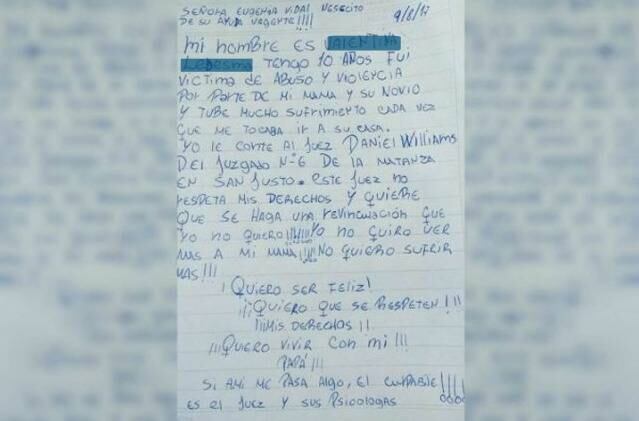 SEÑORA EUGENIA VIDAL NESECITO
DE SU AYUDA URGENTE!!!!
9/8/17
Mi NOMBRE ES
TENGO 10 AÑOS FUI
VICTIMA DE ABUSO Y VIOLENCIA
POR PARTE DE MI MAMA Y SU NOVIO
Y TUBE MUCHO SUFRIMIENTO CADA VEZ
QUE ME TOCABA IR A SU CASA.
YO LE CONTE AL JUEZ DANIEL WILLIAMS
DEL JUZGADO N-6 DE LA MATANZA
EN SAN JUSTO. ESTE JUEZ NO
RESPETA MIS DERECHOS Y QUIERE
QUE SE HAGA UNA REVINCULACIÓN QUE
YO NO QUIERO!!!!! YO NO QUIRO VER
MAS A MI MAMA!!!! NO QUIERO SUFRIR
MAS!!!
¡QUIERO SER FELIZ!
¡¡¡QUIERO QUE SE RESPETEN!!!
!!!MIS DERECHOS!!
¡¡¡QUIERO VIVIR CON MI!!!
PAPÁ!!!
SI AMI ME PASA ALGO, EL CULPABLE!!!!
ES EL JUEZ Y SUS PSICOLOGAS